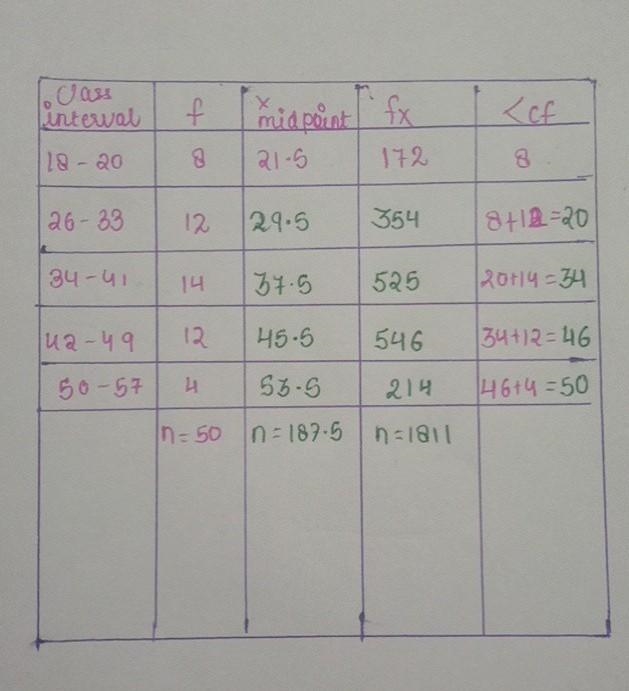 Class interval f x midpoint fx <cf
18-20 8 21.5 172 8
26-33 12 29.5 354 8+12=20
34-41 14 37.5 525 20+14=34
42-49 12 45.5 546 34+12=46
50-57 4 53.5 214 46+4=50
n=50 n=187.5 n=1811